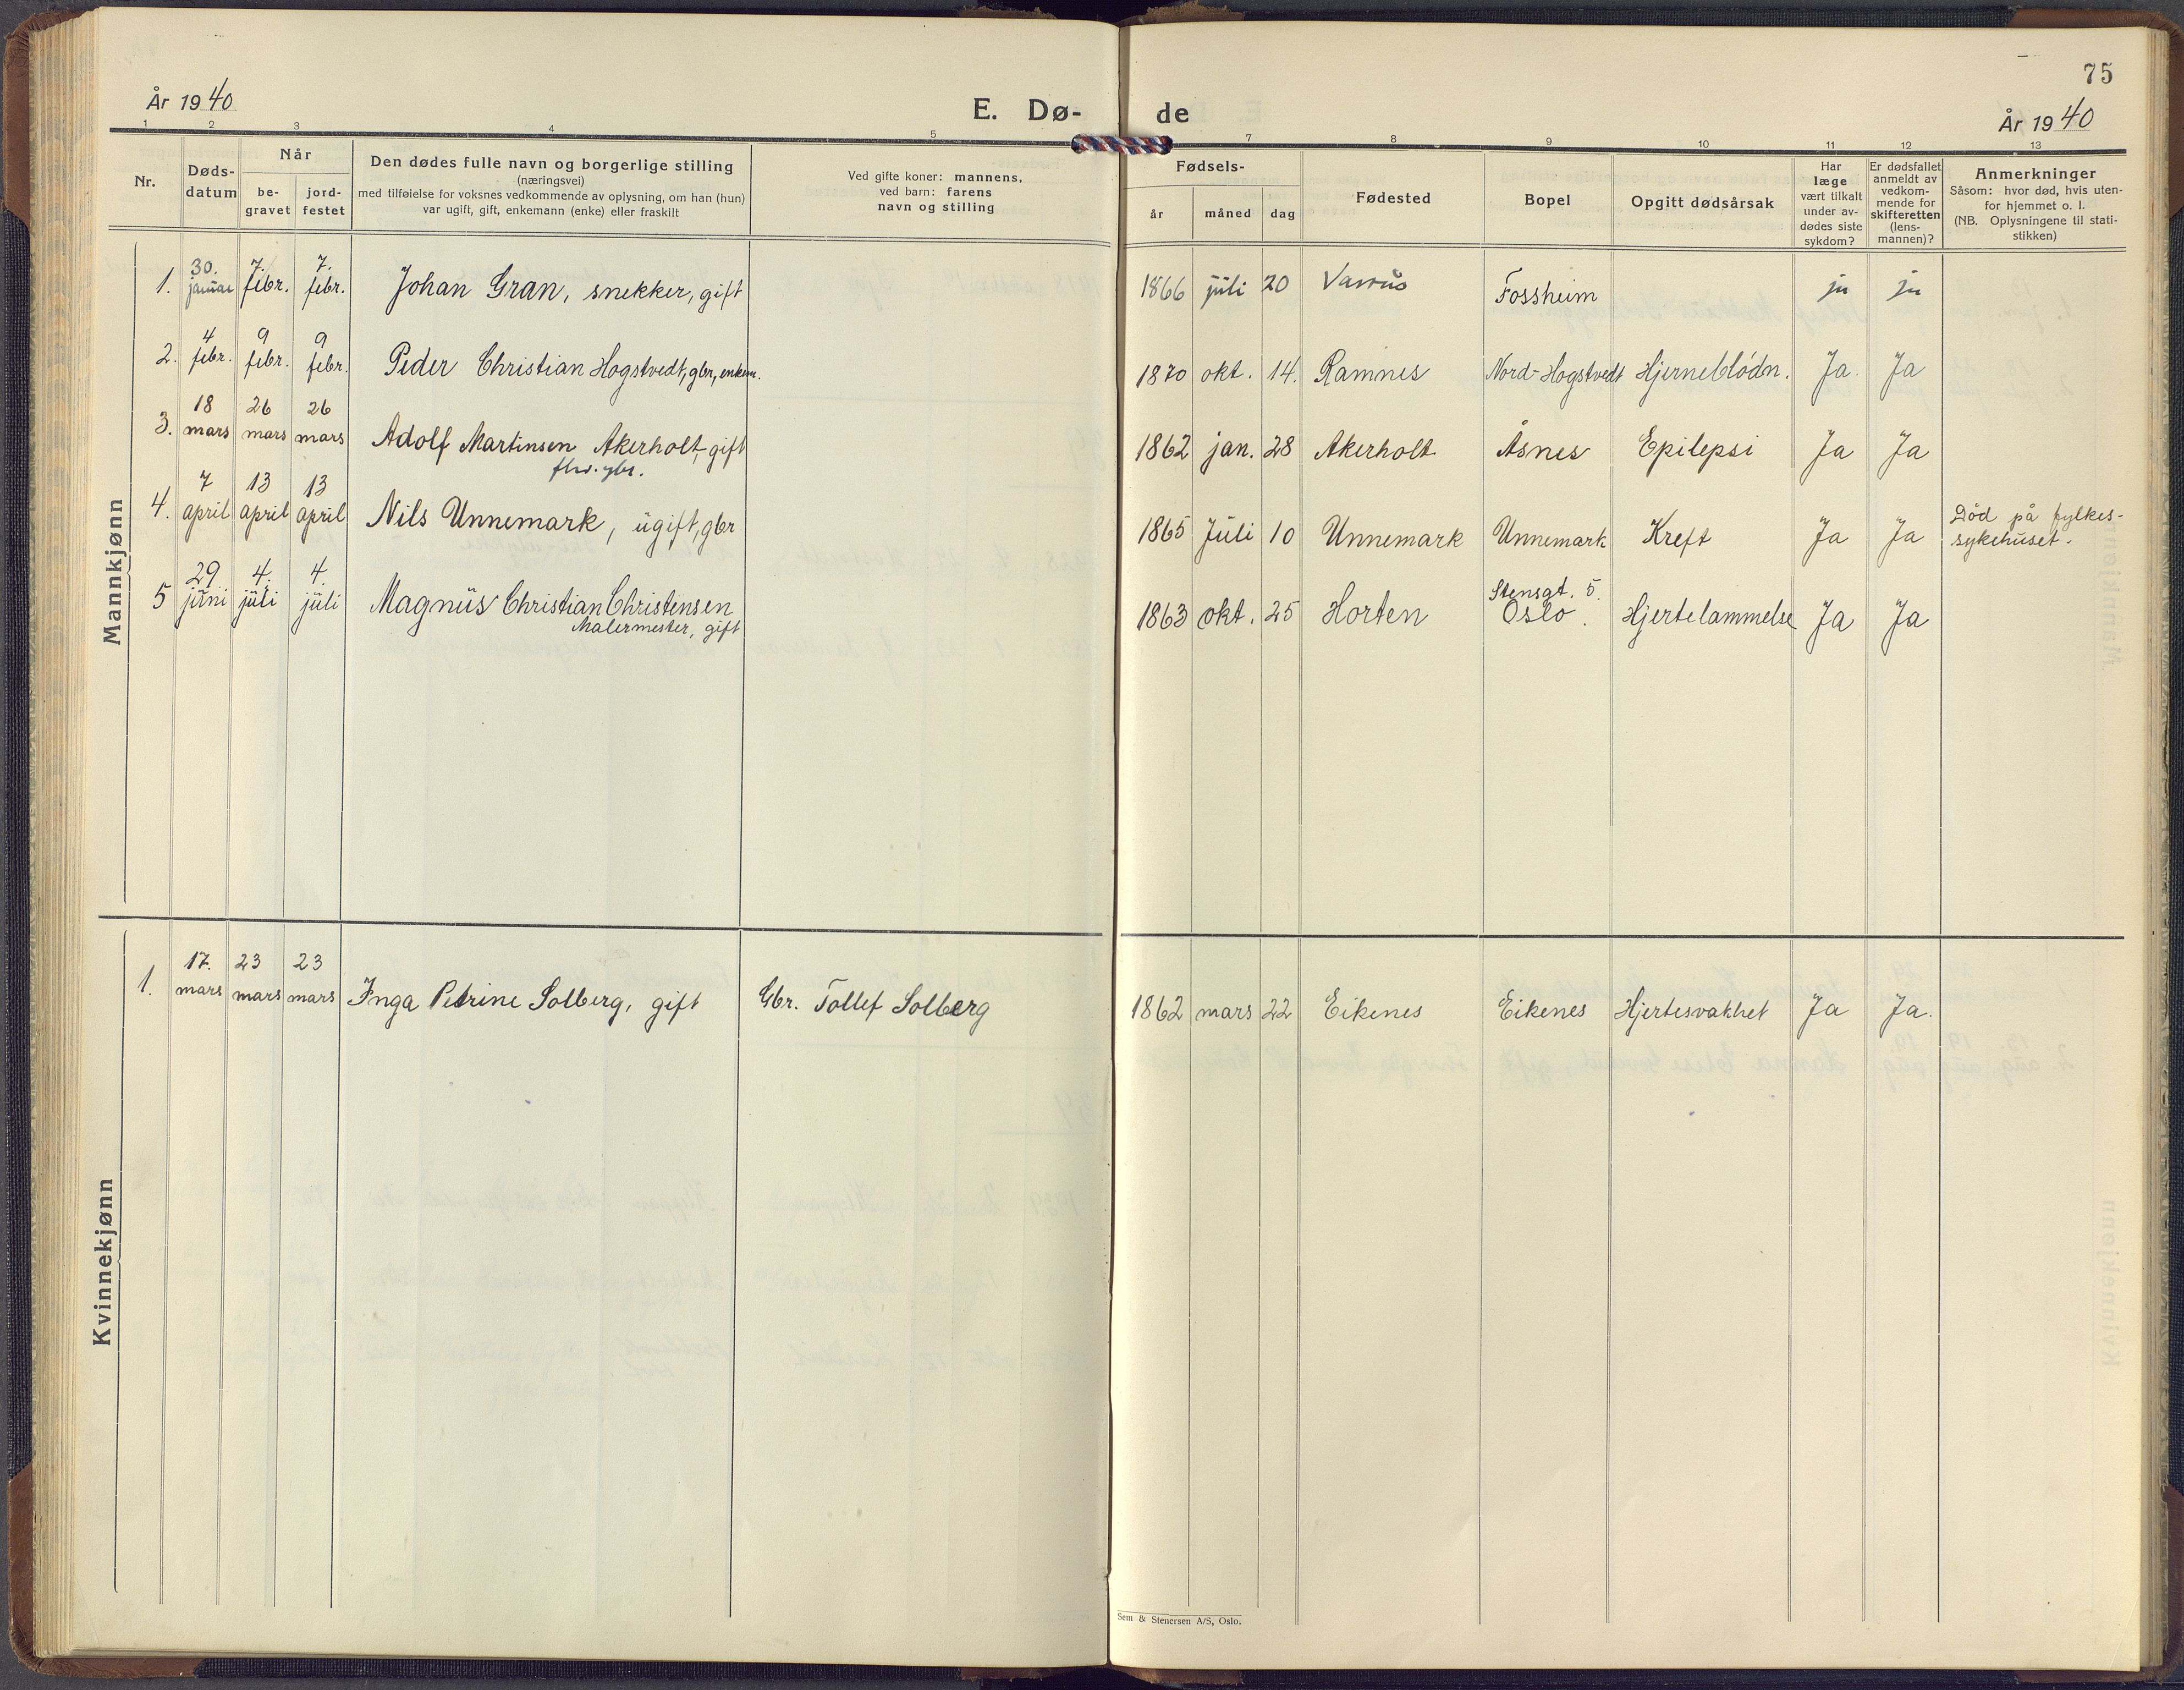 75
År 1940
E. Dø-
de
År 1940
1 2 3 4 5 7 8 9 10 11 12 13
Nr.
Døds-
datum
Når
be-
gravet
jord-
festet
Den dødes fulle navn og borgerlige stilling
(næringsvei)
med tilføielse for voksnes vedkommende av oplysning, om han (hun)
var ugift, gift, enkemann (enke) eller fraskilt
Ved gifte koner: mannens,
ved barn: farens
navn og stilling
Fødsels-
år måned dag
Fødested
Bopel
Opgitt dødsårsak
Har
læge
vært tilkalt
under av-
dødes siste
sykdom?
Er dødsfallet
anmeldt av
vedkom-
mende for
skifteretten
(lens-
mannen)?
Anmerkninger
Såsom: hvor død, hvis uten-
for hjemmet o. l.
(NB. Oplysningene til stati-
stikken)
Mannkjønn
1. 30. januar 7. febr. 7. febr. Johan Gran, snekker, gift 1866 juli 20 Fossheim ja ja
2. 4 febr. 9 febr. 9 febr. Peder Christian Hogstvedt, gbr, enkem. 1870 okt. 14. Ramnes Nord-Hogstvedt Hjerneblødn. Ja. Ja
3. 18 mars 26 mars 26 mars Adolf Martinsen Akerholt, gift 1862 jan. 28 Akerholt Åsnes Epilepsi Ja Ja
fhv. gbr.
4. 7 april 13 april 13 april Nils Unnemark, ugift, gbr 1865 Juli 10 Unnemark Unnemark Kreft Ja Ja Død på fylkes-
sykehuset.
5 29 juni 4. juli 4. juli Magnus Christian Christensen 1863 okt. 25 Horten Stensgt. 5. Oslo. Hjertelammelse Ja Ja
Malermester, gift
Kvinnekjønn
1. 17. mars 23 mars 23 mars Inga Petrine Solberg, gift Gbr. Tollef Solberg 1862 mars 22 Eikenes Eikenes Hjertesvakhet Ja Ja.
Sem & Stenersen A/S, Oslo.